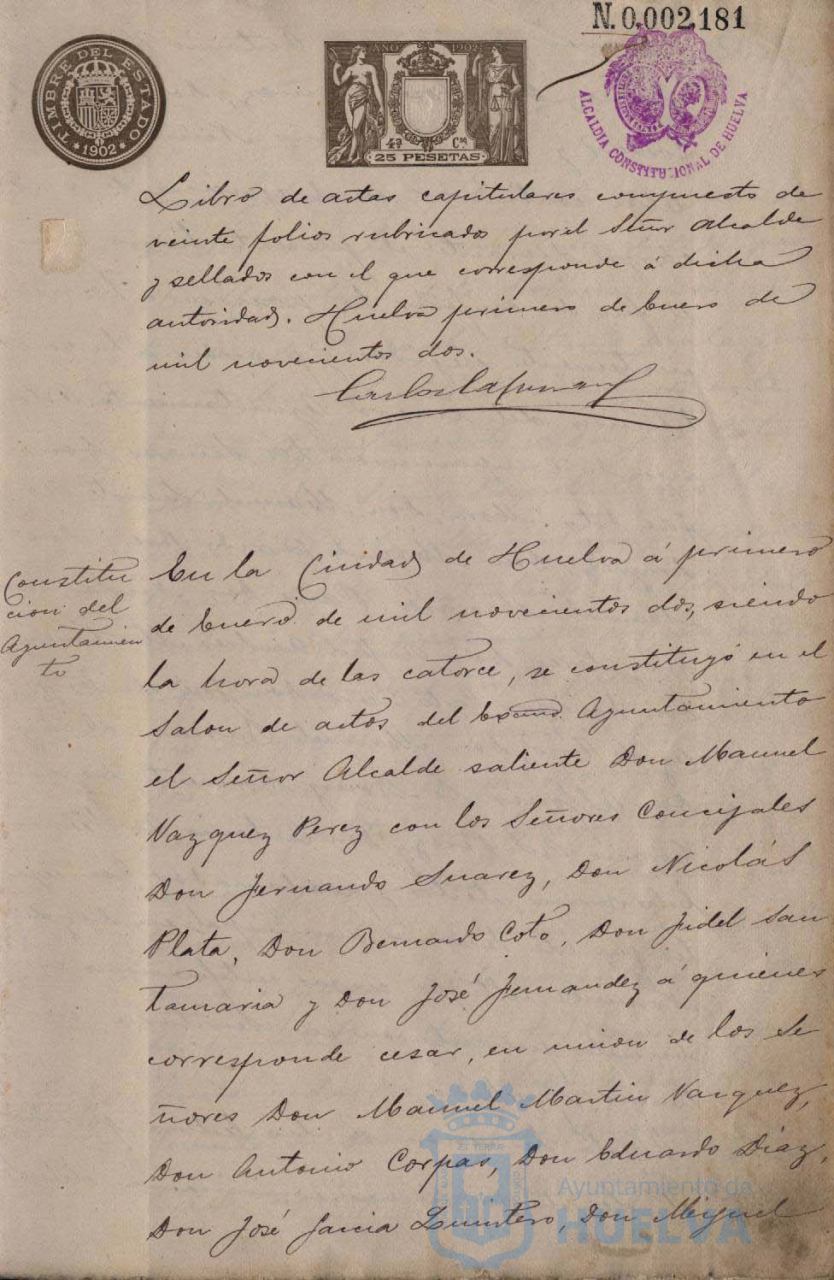 N. 0.002,181
TIMBRE DEL ESTADO
*1902*
AÑO 1902
4ª Cª
25 PESETAS
ALCALDIA CONSTITUCIONAL DE HUELVA
Libro de actas capitulares compuesto de
veinte folios rubricados por el Señor Alcalde
y sellados con el que corresponde á dicha
autoridad. Huelva primero de Enero de
mil novecientos dos.
Constitu
cion del
Ayuntamien
to
En la Ciudad de Huelva á primero
de Enero de mil novecientos dos, siendo
la hora de las catorce, se constituyó en el
Salon de actos del Excmo. Ayuntamiento
el Señor Alcalde saliente Don Manuel
Vazquez Perez con los Señores Concejales
Don Fernando Suarez, Don Nicolás
Plata, Don Bernardo Coto, Don Fidel San
tamaria y Don José Fernandez á quienes
corresponde cesar, en union de los Se
ñores Don Manuel Martin Vazquez,
Don Antonio Corpas, Don Eduardo Diaz,
Don José Garcia Quintero, Don Miguel
Ayuntamiento de
HUELVA